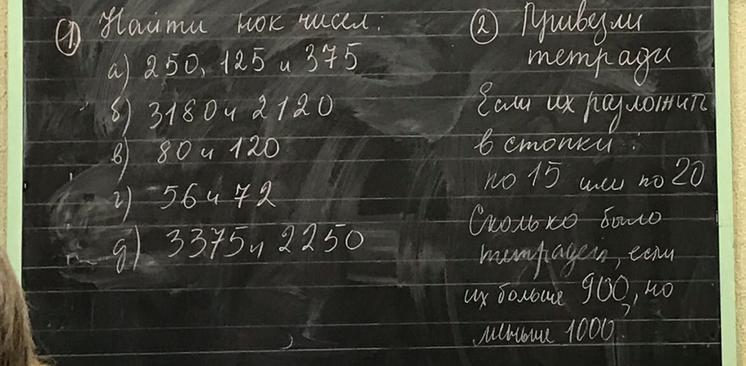 ① Найти нок чисел:
а) 250, 125 и 375
б) 3180 и 2120
в) 80 и 120
г) 56 и 72
д) 3375 и 2250
② Привезли
тетради
Если их разложить
в стопки:
по 15 или по 20
Сколько было
тетрадей, если
их больше 900, но
меньше 1000?